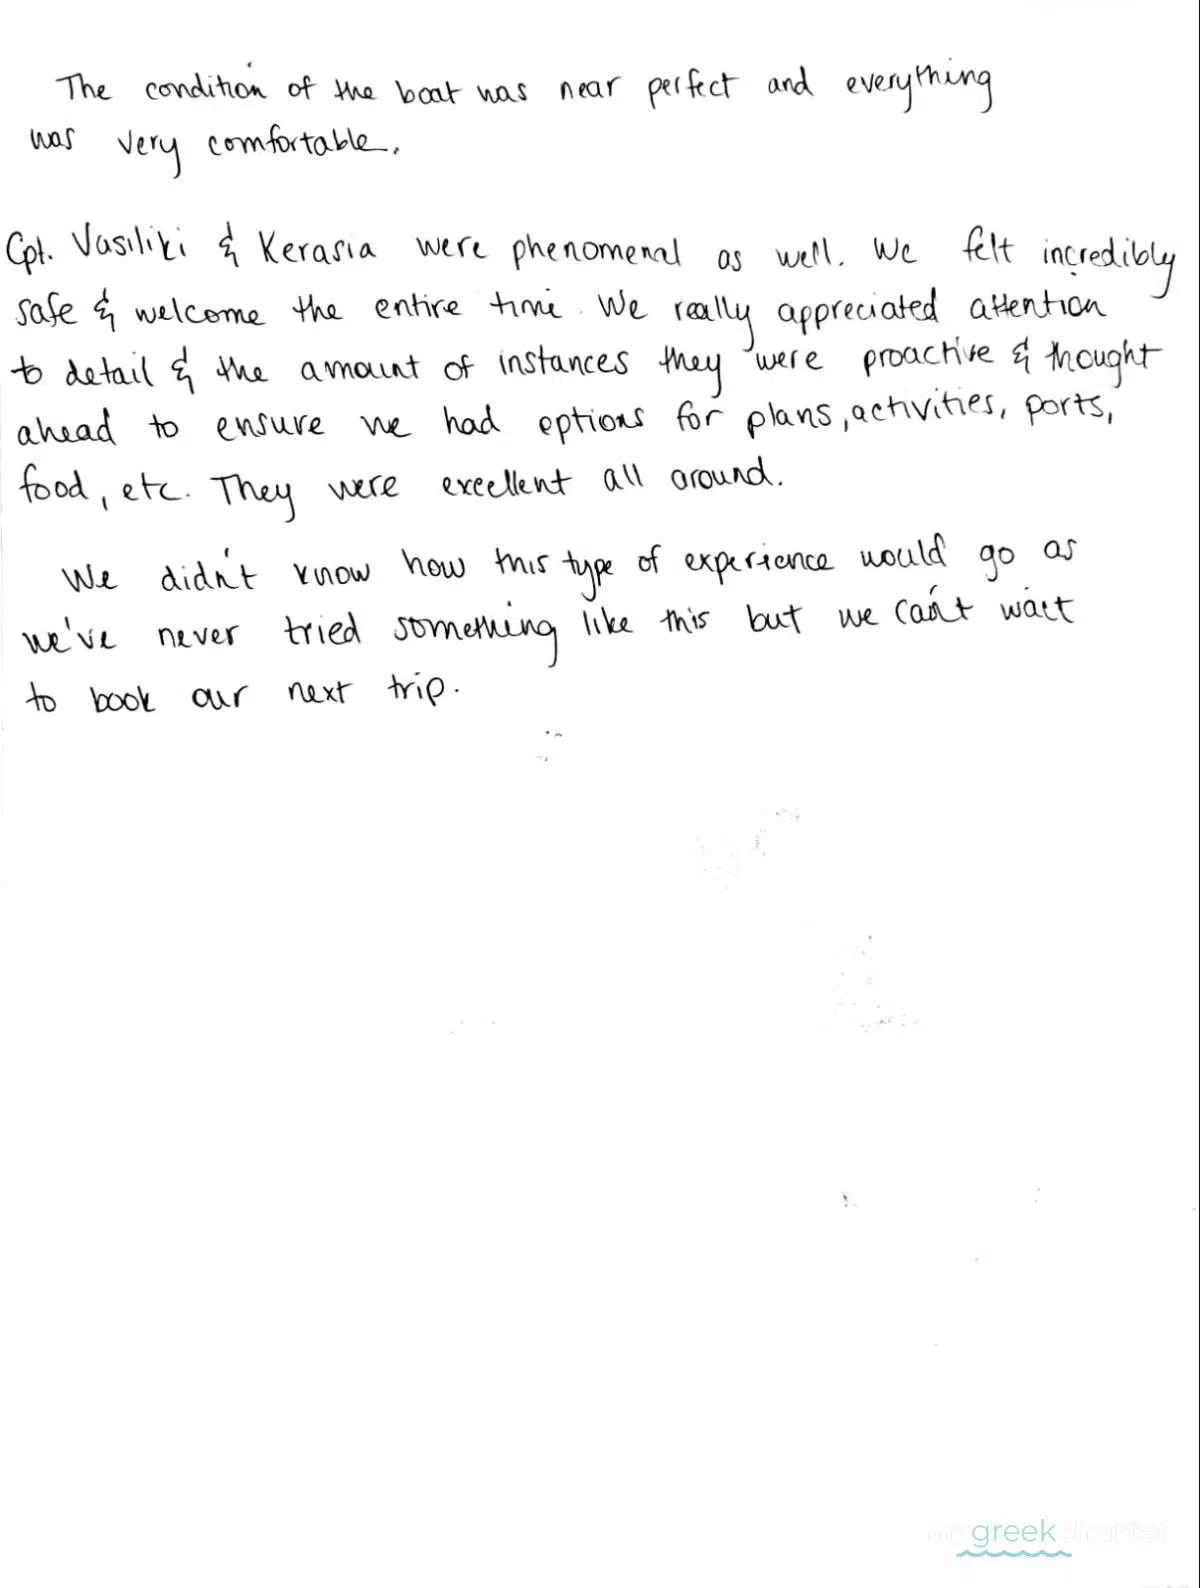 The condition of the boat was near perfect and everything
was very comfortable.
Cpt. Vasiliki & Kerasia were phenomenal as well. We felt incredibly
safe & welcome the entire time. We really appreciated attention
to detail & the amount of instances they were proactive & thought
ahead to ensure we had options for plans, activities, ports,
food, etc. They were excellent all around.
We didn't know how this type of experience would go as
we've never tried something like this but we can't wait
to book our next trip.
my greek charter